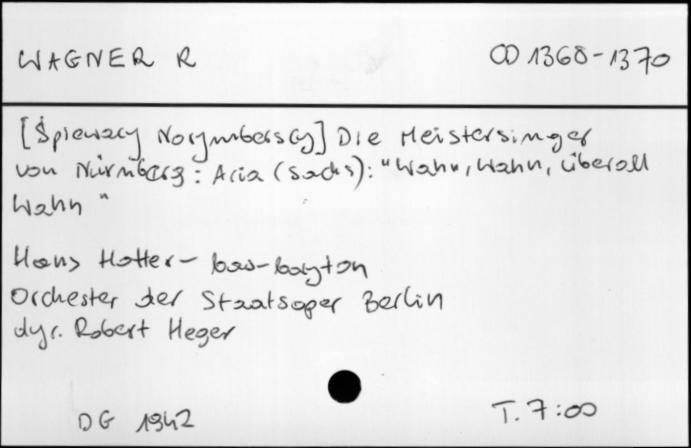 WAGNER R
CD 1368-1370
[Śpiewacy Norymberscy] Die Meistersinger
von Nürnberg: Aria (Sachs): "Wahn, Wahn, überall
Wahn"
Hans Hotter - bas-baryton
Orchester der Staatsoper Berlin
dyr. Robert Heger
DG 1942
T. 7:00